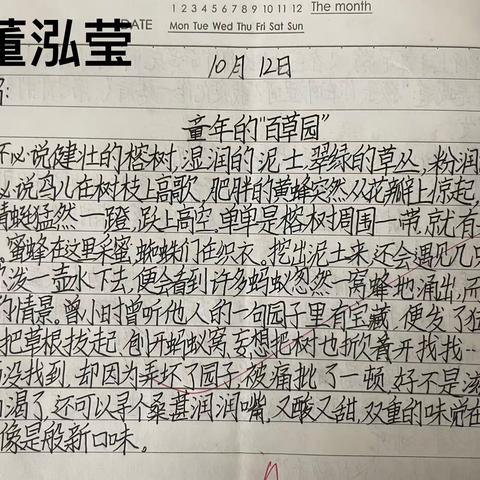 1 2 3 4 5 6 7 8 9 10 11 12 The month
DATE Mon Tue Wed Thu Fri Sat Sun
董泓莹
10月12日
童年的“百草园”
不必说健壮的榕树,湿润的泥土,翠绿的草丛,粉润
必说鸟儿在树枝上高歌,肥胖的黄蜂突然从花瓣上惊起,
蜻蜓猛然一蹬,跃上高空,单单是榕树周围一带,就有
蜜蜂在这里采蜜,蜘蛛们在织衣。挖出泥土来,还会遇见几只
泼一壶水下去,便会看到许多蚂蚁忽然一窝蜂地涌出,
的情景。曾小时曾听他人的一句园子里有宝藏,便发了狂
把草根拔起,刨开蚂蚁窝,妄想把树也掀翻开找找…
没找到,却因为弄坏了园子,被痛批了一顿,好不是
渴了,还可以寻个桑葚润润嘴,又酸又甜,双重的味觉在
像是般新口味。